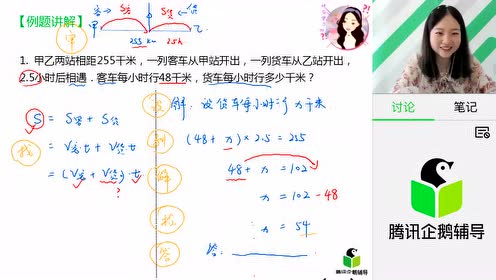 【例题讲解】
甲 S客 S货 乙
255 km 2.5h
1. 甲乙两站相距255千米，一列客车从甲站开出，一列货车从乙站开出，
2.5小时后相遇．客车每小时行48千米，货车每小时行多少千米？
S = S客 + S货
= V客t + V货t
= (V客 + V货)·t
?
找
设
列
解
检
答
解：设货车每小时行x千米
(48 + x) × 2.5 = 255
48 + x = 102
x = 102 - 48
x = 54
答：
讨论 笔记
腾讯企鹅辅导
腾讯企鹅辅导